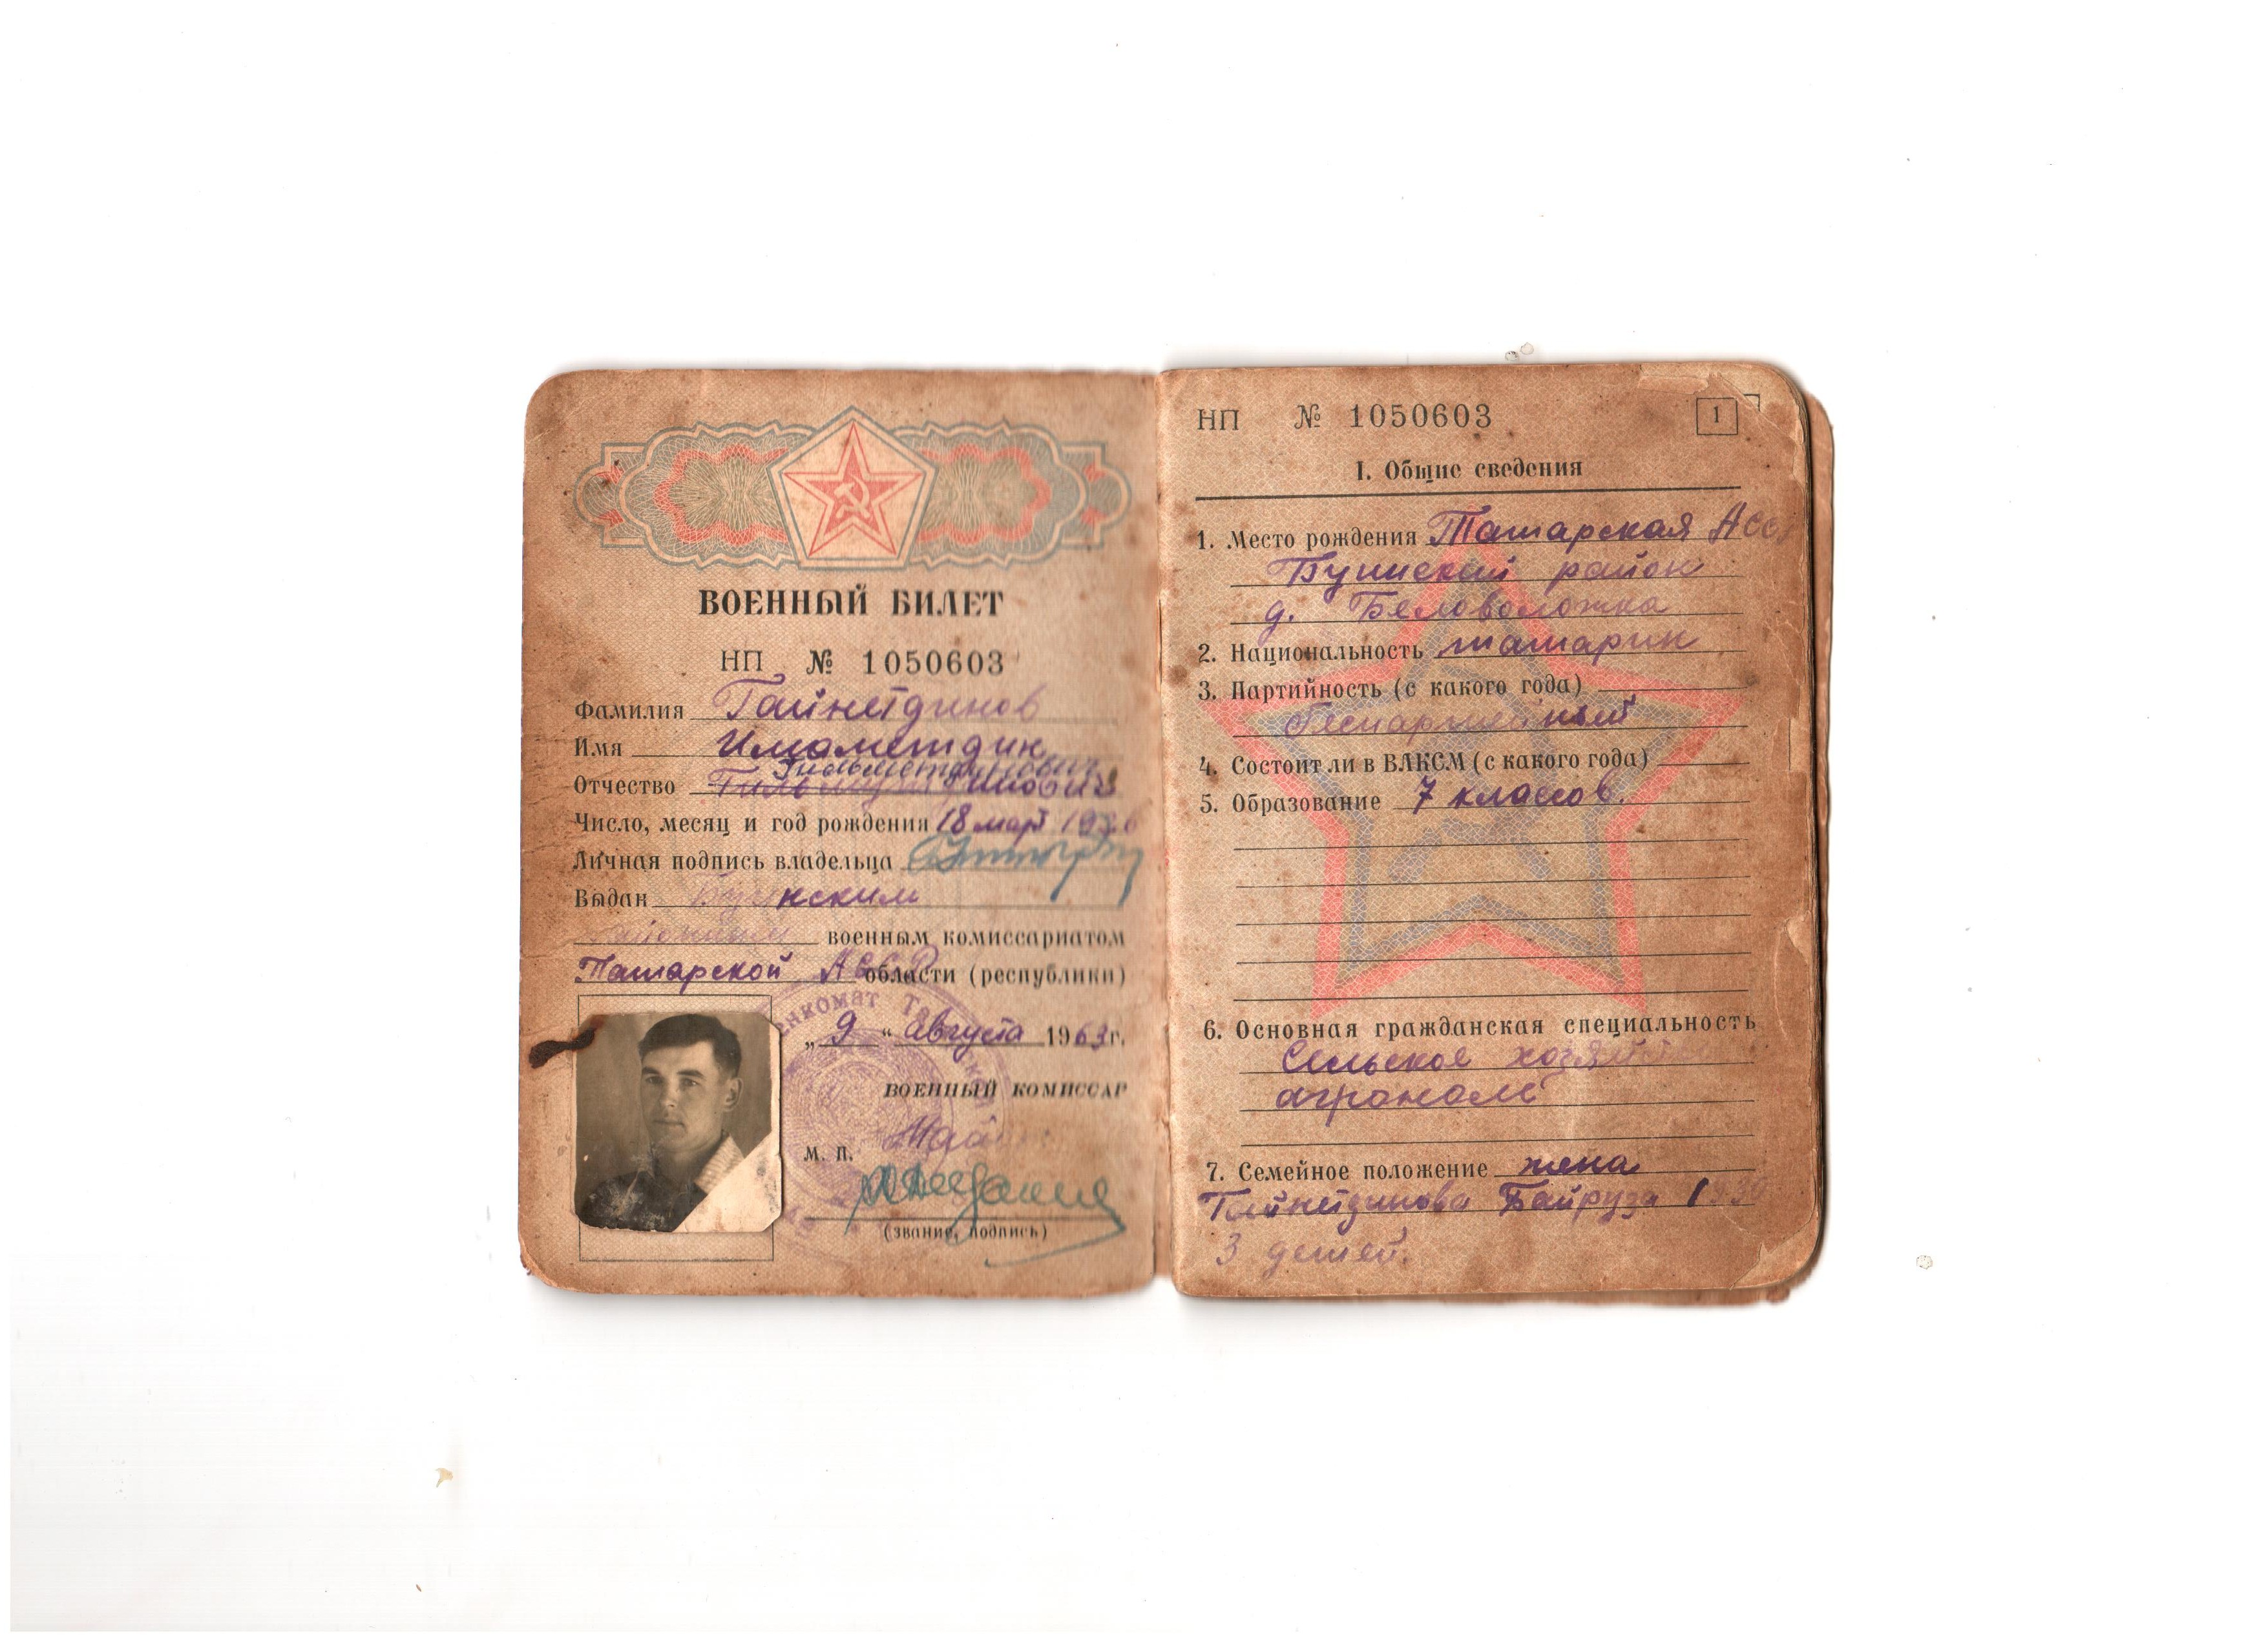 ВОЕННЫЙ БИЛЕТ
НП № 1050603
Фамилия Гайнетдинов
Имя Имаметдин
Гильметдинович
Отчество
Число, месяц и год рождения 18 март
Личная подпись владельца
Выдан Буинским
военным комиссариатом
Татарской АССР области (республики)
„ 9 “ августа 1963 г.
ВОЕННЫЙ КОМИССАР
Май
М. П.
(звание, подпись)
НП № 1050603
1
I. Общие сведения
1. Место рождения Татарская АСС
Буинский район
д. Беловоложка
2. Национальность татарин
3. Партийность (с какого года)
беспартийный
4. Состоит ли в ВЛКСМ (с какого года)
5. Образование 7 классов.
6. Основная гражданская специальность
Сельское
агроном
7. Семейное положение жена
Гайнетдинова Байруза
3 детей.